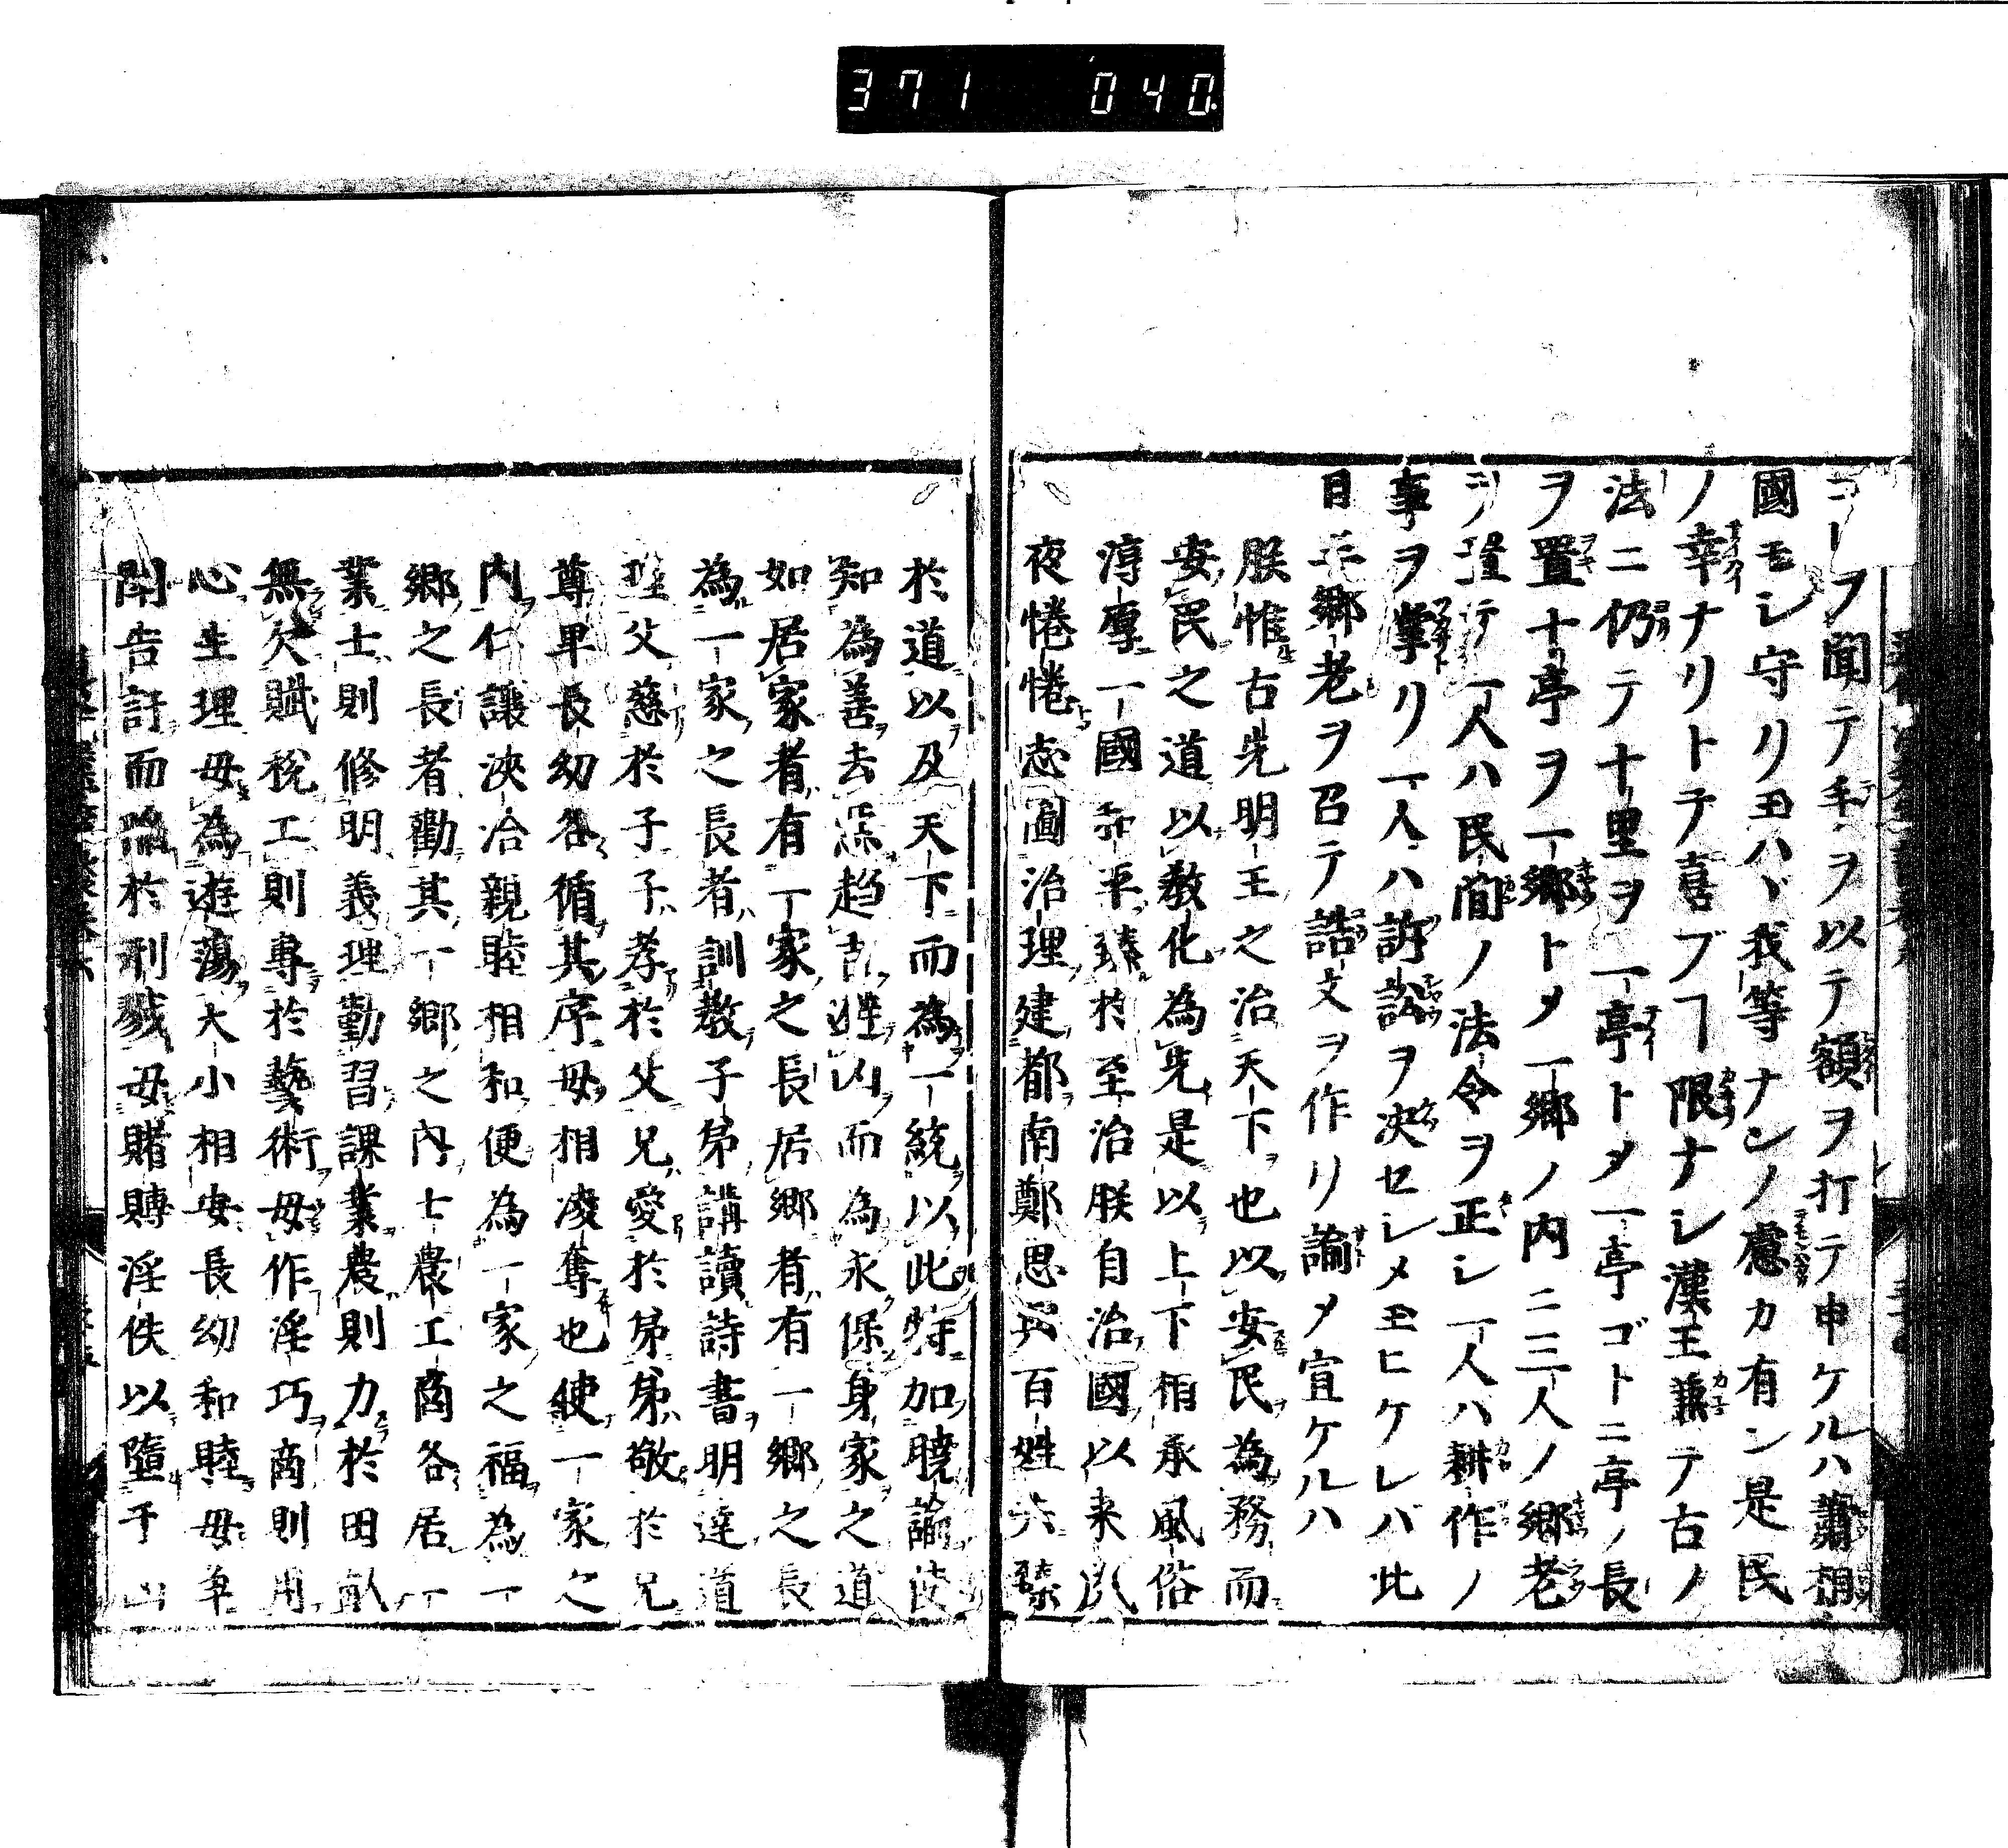 371 040
ヲ聞テ手ヲ以テ額ヲ打テ申ケルハ蕭相
國モシ守リ玉ハヾ我等ナンノ慮カ有ン是民
ノ幸ナリトテ喜ブヿ限ナシ漢王兼テ古ノ
法ニ仍テ十里ヲ一亭トメ一亭ゴトニ亭ノ長
ヲ置十亭ヲ一郷トメ一郷ノ内ニ三人ノ郷老
ヲ置テ一人ハ民間ノ法令ヲ正シ一人ハ耕作ノ
事ヲ掌リ一人ハ訴訟ヲ决セシメ玉ヒケレバ此
日郷老ヲ召テ誥文ヲ作リ諭メ宣ケルハ
朕惟古先明王之治天下也以安民為務而
安民之道以教化為先是以上下相承風俗
淳厚一國和平臻於至治朕自治國以来夙
夜惓惓志圖治理建都南鄭思與百姓共臻
於道以及天下而為一統以此特加曉諭使
知為善去惡趨吉避凶而為永保身家之道
如居家者有一家之長居郷者有一郷之長
為一家之長者訓教子弟講讀詩書明達道
理父慈於子子孝於父兄愛於弟弟敬於兄
尊卑長幼各循其序毋相凌奪也使一家之
内仁讓浹洽親睦相和便為一家之福為一
郷之長者勸其一郷之内士農工商各居一
業士則修明義理勤習課業農則力於田畝
無欠賦税工則專於藝術毋作淫巧商則用
心生理毋為遊蕩大小相安長幼和睦毋争
閗告訐而陥於刑戮毋賭賻淫佚以墮于凶